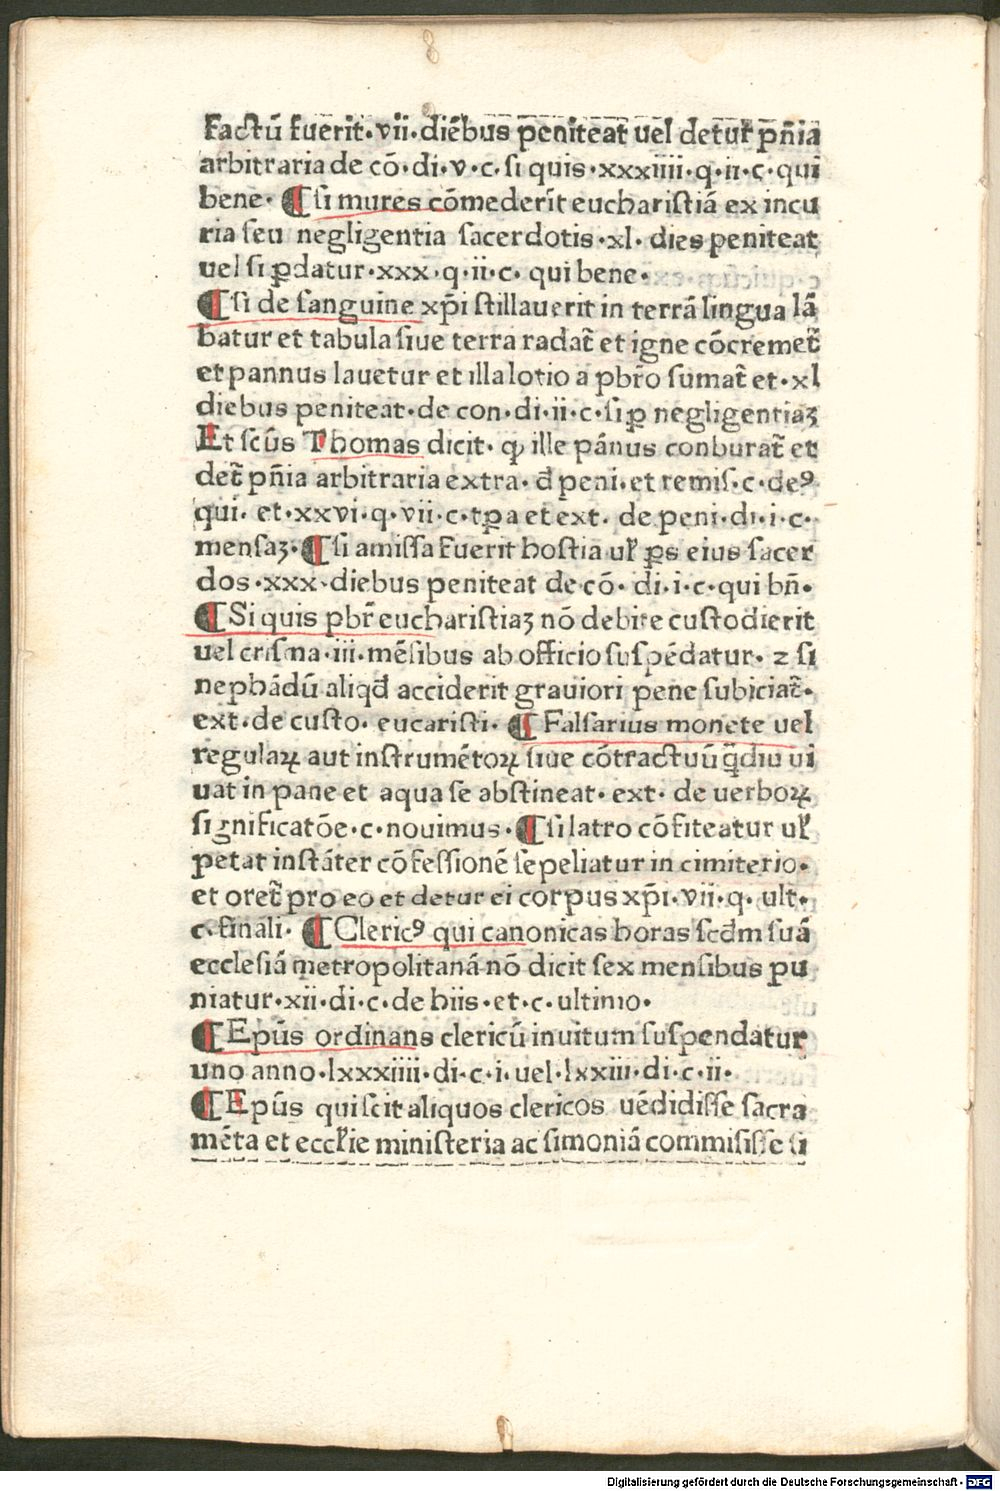 8
factū fuerit·vii·diēbus peniteat uel detur̄ pn̄ia
arbitraria de cō·di·v·c·si quis·xxxiiii·q·ii·c·qui
bene· ¶ si mures cōmederīt eucharistiā ex incu
ria seu negligentia sacerdotis·xl·dies peniteat
uel si ꝑdatur·xxx·q·ii·c· qui bene·
¶ si de sanguine xp̄i stillauerit in terrā lingua lā
batur et tabula siue terra radat̄ et igne cōcremet̄
et pannus lauetur et illa lotio a pbr̄o sumat̄ et·xl
diebus peniteat·de con·di·ii·c·si ꝑ negligentiaꝫ
Et scūs Thomas dicit· ꝙ ille pānus conburat̄ et
det̄ pn̄ia arbitraria extra· đ peni·et remis·c·deꝰ
qui· et·xxvi·q·vii·c·tꝑa et ext· de peni·di·i·c·
mensaꝫ·¶ si amissa fuerit hostia ul̄ ꝑs eius sacer
dos·xxx·diebus peniteat de cō· di·i·c·qui bn̄·
¶ Si quis pbr̄ eucharistiaꝫ nō debite custodierit
uel crisma·iii·mēsibus ab officio suspēdatur· ⁊ si
nephādū aliqđ acciderit grauiori pene subiciat̄·
ext·de custo· eucaristi· ¶ Falsarius monete uel
regulaꝝ aut instrumētoꝝ siue cōtractuū q̄diu ui
uat in pane et aqua se abstineat· ext· de uerboꝝ
significatōe·c·nouimus·¶ si latro cōfiteatur ul̄
petat instāter cōfessionē sepeliatur in cimiterio·
et oret̄ pro eo et detur ei corpus xp̄i·vii·q· ult·
c·finali· ¶ Clericꝰ qui canonicas horas scđm suā
ecclesiā metropolitanā nō dicit sex mensibus pu
niatur·xii·di·c·de hiis·et·c·ultimo·
¶ Ep̄us ordinans clericū inuitum suspendatur
uno anno·lxxxiiii·di·c·i·uel·lxxiii·di·c·ii·
¶ Ep̄us qui scit aliquos clericos uēdidisse sacra
mēta et eccl̄ie ministeria ac simoniā commisisse si
Digitalisierung gefördert durch die Deutsche Forschungsgemeinschaft · DFG